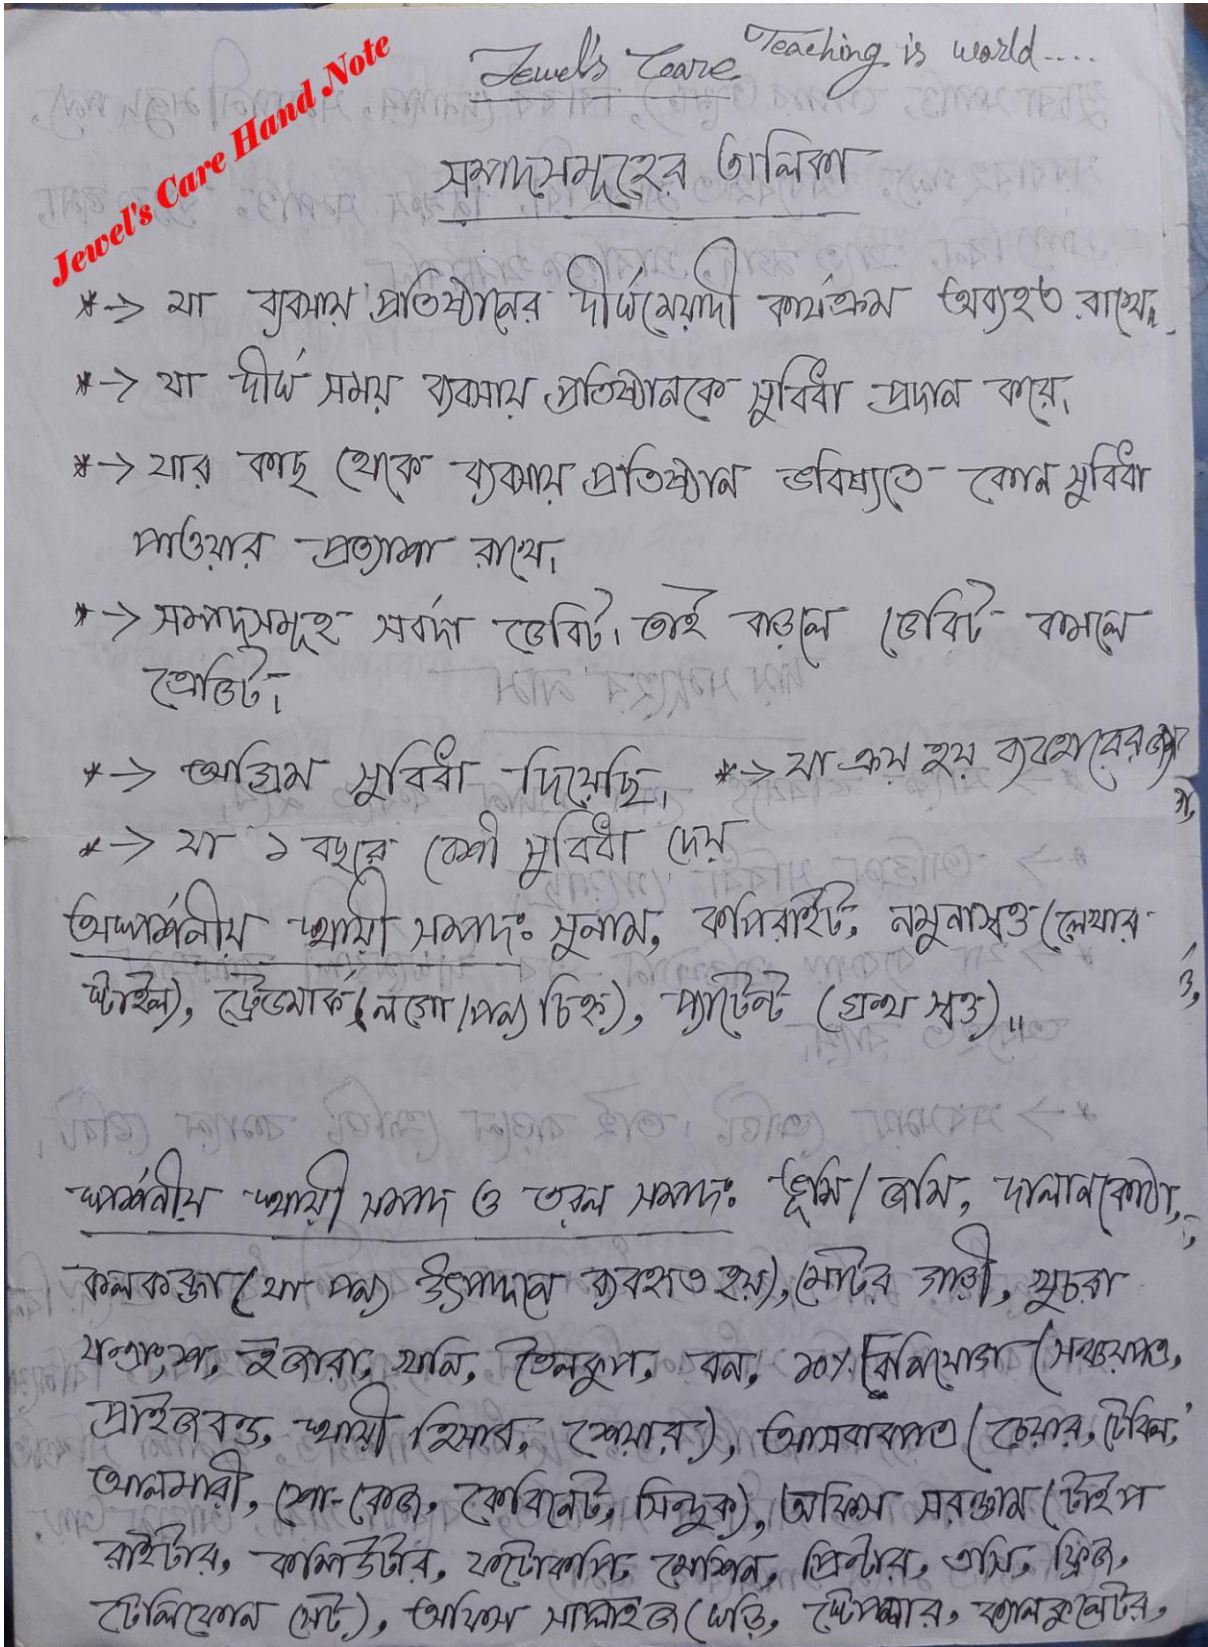 Jewel's Care Teaching is world....
Jewel's Care Hand Note
সম্পদসমূহের তালিকা
*-> যা ব্যবসায় প্রতিষ্ঠানের দীর্ঘমেয়াদী কার্যক্রম অব্যহত রাখে।
*-> যা দীর্ঘ সময় ব্যবসায় প্রতিষ্ঠানকে সুবিধা প্রদান করে।
*-> যার কাছ থেকে ব্যবসায় প্রতিষ্ঠান ভবিষ্যতে কোন সুবিধা
পাওয়ার প্রত্যাশা রাখে।
*-> সম্পদসমূহ সর্বদা ডেবিট। তাই বাড়লে ডেবিট কমলে
ক্রেডিট।
*-> অগ্রিম সুবিধা দিয়েছি। *-> যা ক্রয় হয় ব্যবহারের জন্য
*-> যা ১ বছরে বেশী সুবিধা দেয়
অদৃর্শনীয় স্থায়ী সম্পদঃ সুনাম, কপিরাইট, নমুনাস্বত্ত (লেখার
স্টাইল), ট্রেডমার্ক (লগো/পন্য চিহ্ন), প্যাটেন্ট (গ্রন্থ স্বত্ত)॥
দৃর্শনীয় স্থায়ী সম্পদ ও তরল সম্পদঃ ভূমি/জমি, দালানকোঠা,
কলকব্জা (যা পন্য উৎপাদনে ব্যবহৃত হয়), মোটর গাড়ী, খুচরা
যন্ত্রাংশ, ইজারা, খনি, তৈলকুপ, বন, ১০% বিনিয়োগ (সঞ্চয়পত্র,
প্রাইজবন্ড, স্থায়ী হিসাব, শেয়ার), আসবাবপত্র (চেয়ার, টেবিল,
আলমারী, শো-কেজ, কেবিনেট, সিন্দুক), অফিস সরঞ্জাম (টাইপ
রাইটার, কম্পিউটার, ফটোকপি মেশিন, প্রিন্টার, এসি, ফ্রিজ,
টেলিফোন সেট), অফিস সাপ্লাইজ (ঘড়ি, স্টেপলার, ক্যালকুলেটর,